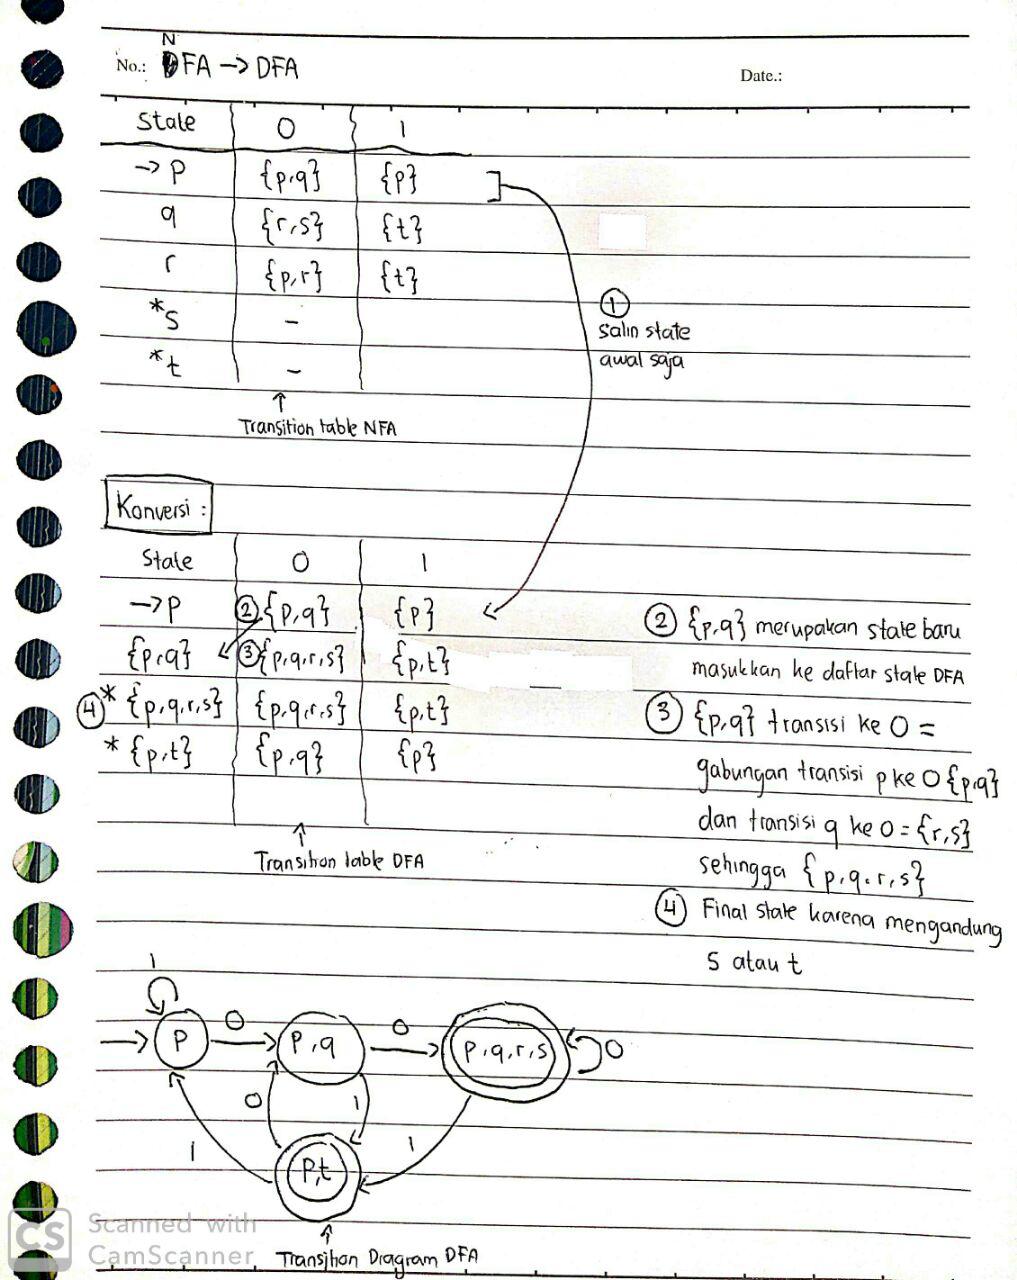 N
No.: DFA -> DFA
Date.:
State 0 1
-> p {p,q} {p}
q {r,s} {t}
r {p,r} {t}
*s -
*t -
① salin state
awal saja
↑
Transition table NFA
Konversi :
State 0 1
-> p ② {p,q} {p}
{p,q} ③ {p,q,r,s} {p,t}
④ * {p,q,r,s} {p,q,r,s} {p,t}
* {p,t} {p,q} {p}
↑
Transition table DFA
② {p,q} merupakan state baru
masukkan ke daftar state DFA
③ {p,q} transisi ke 0 =
gabungan transisi p ke 0 {p,q}
dan transisi q ke 0 = {r,s}
sehingga { p,q,r,s}
④ Final state karena mengandung
s atau t
1
p 0 p,q 0 p,q,r,s 0
0 1
1 1
p,t
↑
Transition Diagram DFA
CS Scanned with
CamScanner